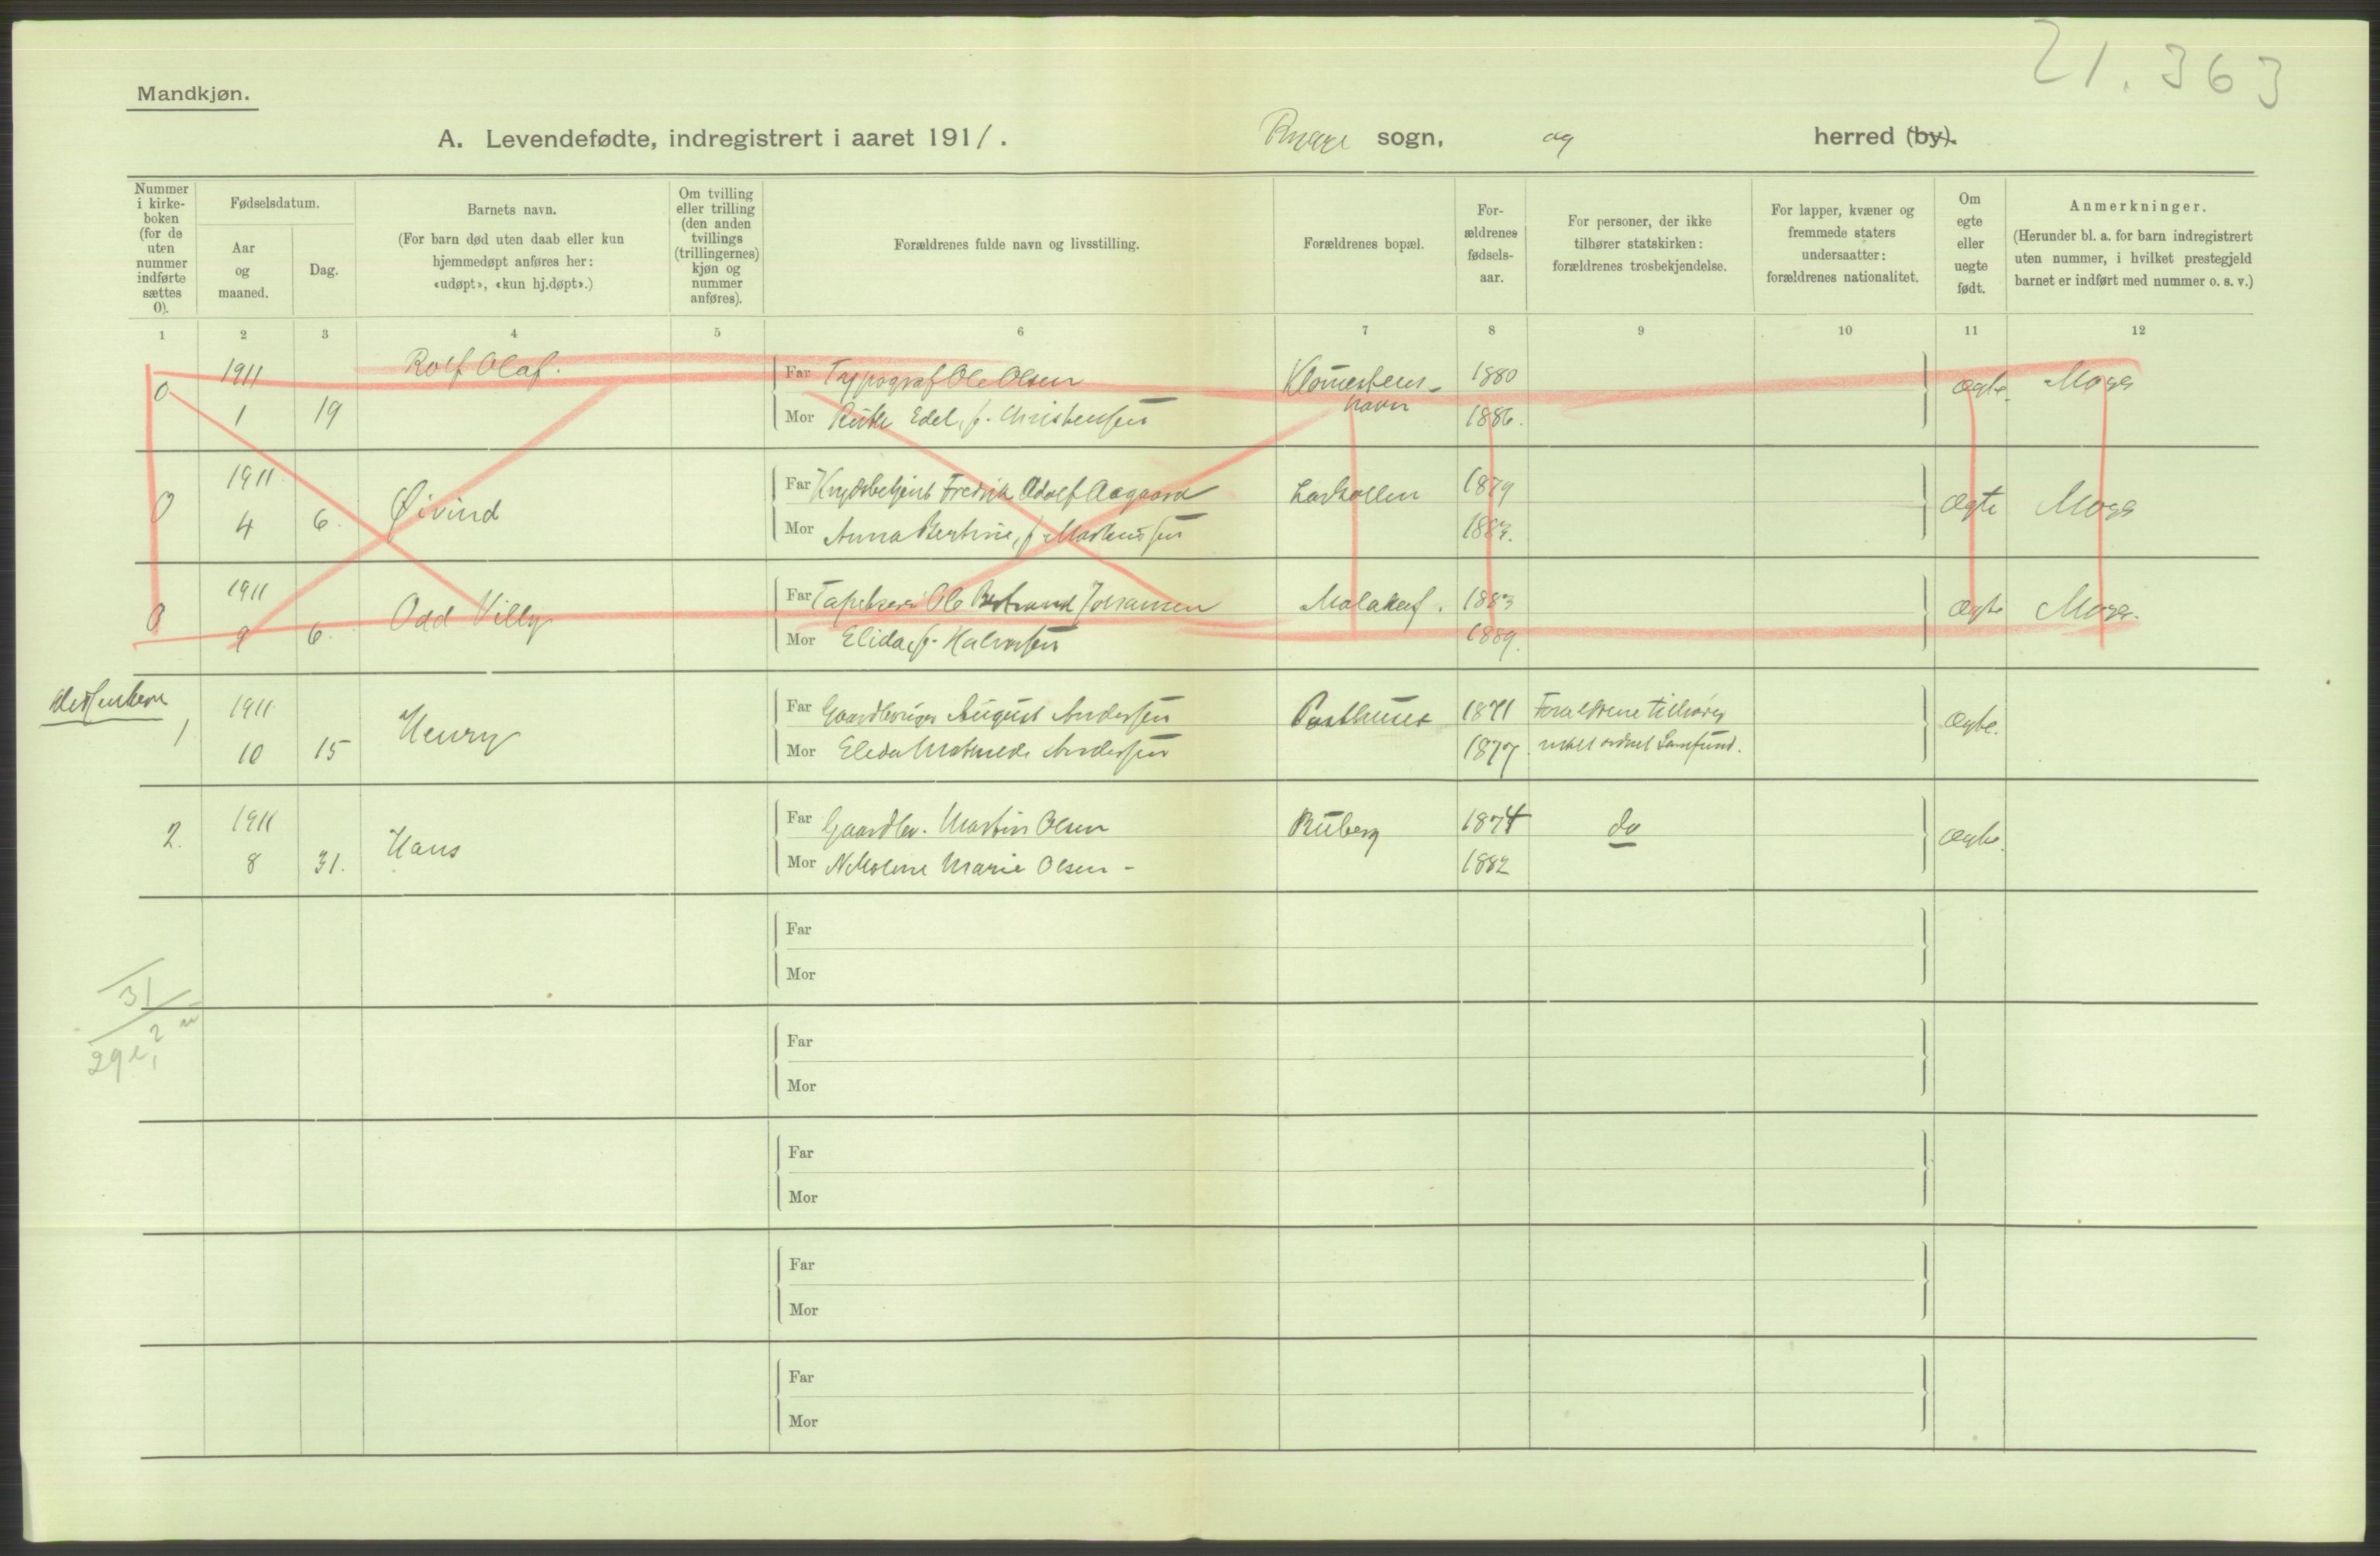 21.363
Mandkjøn.
A. Levendefødte, indregistrert i aaret 1911. Rygge sogn, og herred (by).
Nummer i kirkeboken (for de uten nummer indførte sættes 0).
Fødselsdatum.
Aar og maaned.
Dag.
Barnets navn.
(For barn død uten daab eller kun hjemmedøpt anføres her: «udøpt», «kun hj.døpt».)
Om tvilling eller trilling (den anden tvillings (trillingernes) kjøn og nummer anføres).
Forældrenes fulde navn og livsstilling.
Forældrenes bopæl.
For-ældrenes fødsels-aar.
For personer, der ikke tilhører statskirken: forældrenes trosbekjendelse.
For lapper, kvæner og fremmede staters undersaatter: forældrenes nationalitet.
Om egte eller uegte født.
Anmerkninger.
(Herunder bl. a. for barn indregistrert uten nummer, i hvilket prestegjeld barnet er indført med nummer o. s. v.)
1 2 3 4 5 6 7 8 9 10 11 12
0 1911 Rolf Olaf. Far Typograf Ole Olsen 1880 Ægte. Moss
1 19 Mor Edel, f. Christensen havn 1886.
0 1911 Øivind Far Fredrik Adolf Aagaard Larkollen 1879 Ægte Moss
4 6. Mor Anna Bertine, f. 1883.
0 1911 Odd Villy Far Ole Johansen Malakof. 1883 Ægte Moss.
9 6. Mor Elida, f. Halvorsen 1889.
Dissentere
1 1911 Henry Far Gaardbruger August Andersen Posthuset 1871 Forældrene tilhører Ægte.
10 15 Mor Andersen 1877 ordnet Samfund.
2. 1911 Hans Far Gaardbr. Martin Olsen Ruberg 1874 do Ægte.
8 31. Mor Marie Olsen - 1882
Far
Mor
31
2
29
Far
Mor
Far
Mor
Far
Mor
Far
Mor